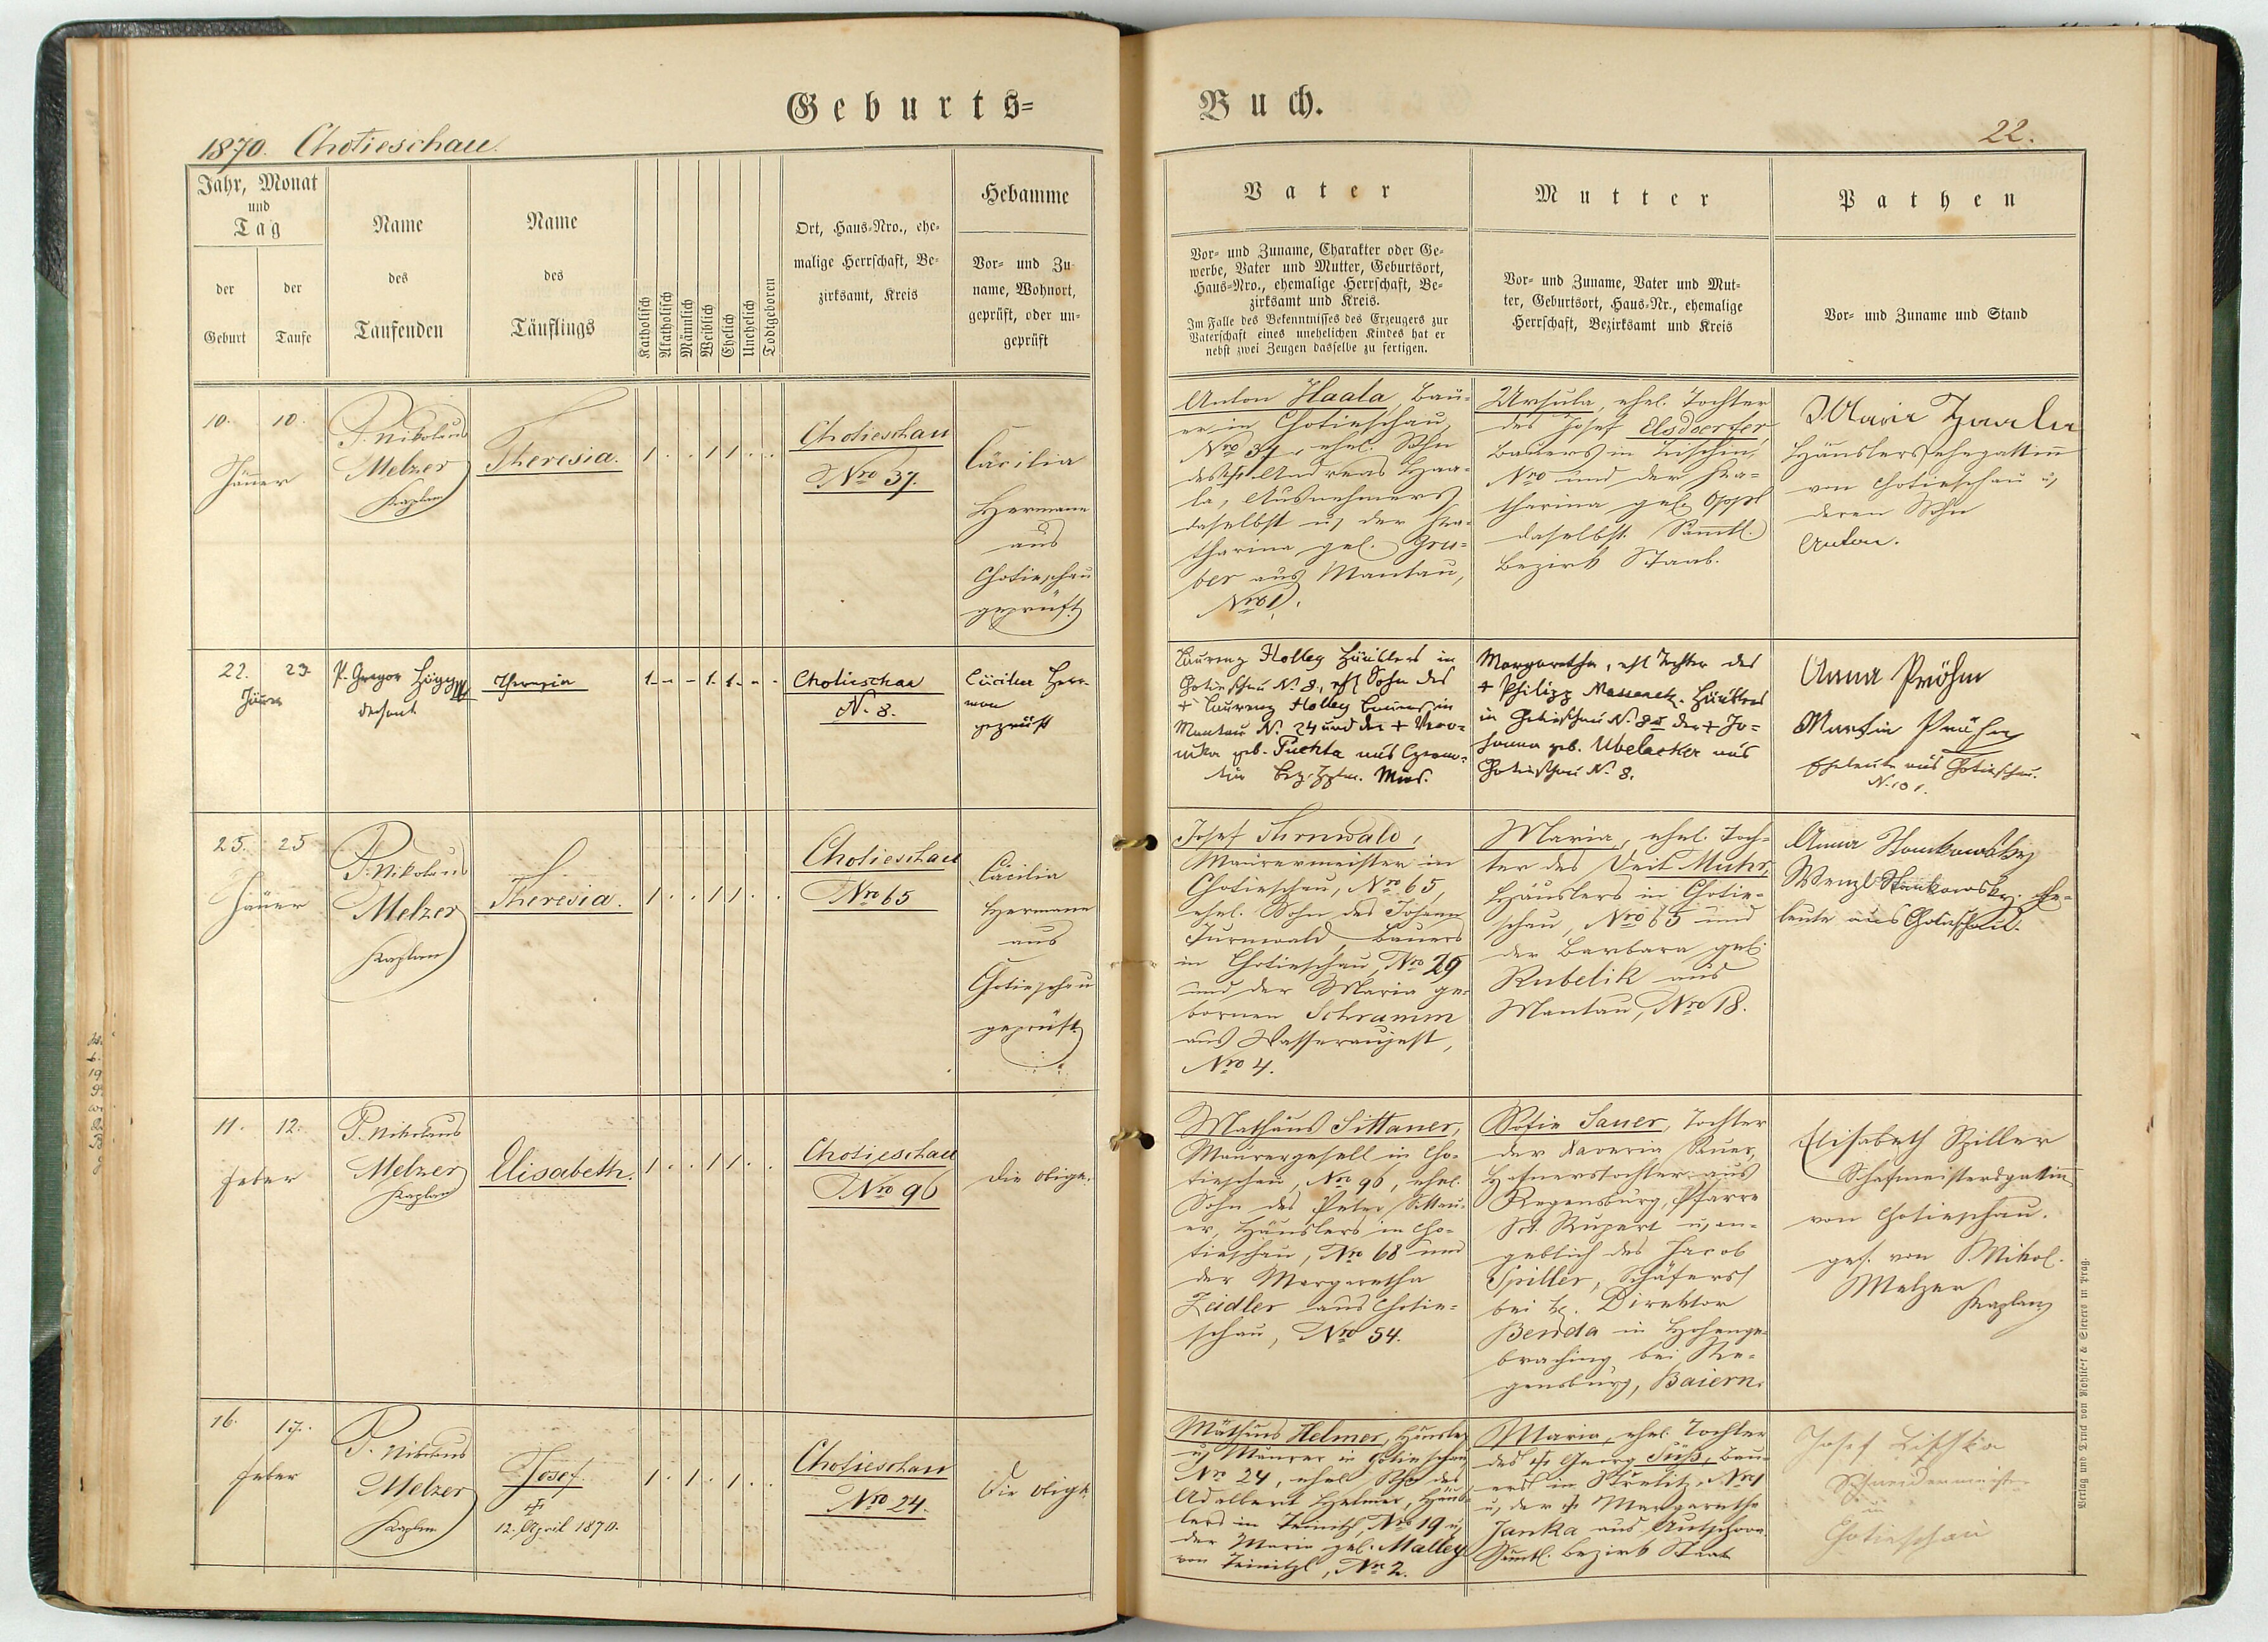 Geburts-
Buch.
1870. Chotieschau.
22.
Jahr, Monat
und
Tag
der
Geburt
der
Taufe
Name
des
Taufenden
Name
des
Täuflings
Katholisch
Akatholisch
Männlich
Weiblich
Ehelich
Unehelich
Todtgeboren
Ort, Haus-Nro., ehe-
malige Herrschaft, Be-
zirksamt, Kreis
Hebamme
Vor- und Zu-
name, Wohnort,
geprüft, oder un-
geprüft
Vater
Vor- und Zuname, Charakter oder Ge-
werbe, Vater und Mutter, Geburtsort,
Haus-Nro., ehemalige Herrschaft, Be-
zirksamt und Kreis.
Im Falle des Bekenntnisses des Erzeugers zur
Vaterschaft eines unehelichen Kindes hat er
nebst zwei Zeugen dasselbe zu fertigen.
Mutter
Vor- und Zuname, Vater und Mut-
ter, Geburtsort, Haus-Nr., ehemalige
Herrschaft, Bezirksamt und Kreis
Pathen
Vor- und Zuname und Stand
10. 10.
Jänner
P. Nikolaus
Melzer
Kaplan
Theresia.
1 . . 1 1 . .
Chotieschau
Nro 37.
Cäcilia
Hermann
aus
Chotieschau
geprüft
Anton Haala, Bau-
er in Chotieschau,
Nro 37, ehel. Sohn
des Andreas Haa-
la, Ausnehmers
daselbst u. der Ka-
tharina geb. Gru-
ber aus Mantau,
Nro 1.
Ursula, ehel. Tochter
des Josef Elsdoerfer,
Bauers in
Nro und der Ka-
tharina geb. Oppl
daselbst. Sämtl.
Bezirk Staab.
Maria Haala
Häuslersehegattin
von Chotieschau u.
deren Sohn
Anton.
22. 23.
Jänner
P. Gregor
Dechant
Theresia
1 - - 1. 1. - -
Chotieschau
N. 8.
Cäcilia Her-
man
geprüft
Laurenz Holley Häuslers in
Chotieschau N. 8, ehl Sohn des
+ Laurenz Holley Bauers in
Mantau N. 24 und der + Vero-
nika geb. Puchta aus
Mies.
Margaretha, ehl Tochter des
+ Philipp Massanetz Häuslers
in Chotieschau N. 8 u. der + Jo-
hanna geb. Ubelacker aus
Chotieschau N. 8.
Anna Pröhm
Martin Pröhm
Eheleute aus Chotieschau.
N. 101.
25. 25
Jänner
P. Nikolaus
Melzer
Kaplan
Theresia.
1 . . 1 1 . .
Chotieschau
Nro 65
Cäcilia
Hermann
aus
Chotieschau
geprüft
Josef Thrnwald,
Maurermeister in
Chotieschau, Nro 65,
ehel. Sohn des Johann
Turnwald, Bauers
in Chotieschau, Nro 29
und der Maria ge-
bornen Schramm
aus Wasseraujest,
Nro 4.
Maria, ehel. Toch-
ter des Veit Muhr,
Häuslers in Chotie-
schau, Nro 65 und
der Barbara geb.
Rubelik aus
Mantau, Nro 18.
Anna Stankowsky
Wenzl Stankowsky, Ehe-
leute aus Chotieschau.
11. 12.
Feber
P. Nikolaus
Melzer
Kaplan
Elisabeth.
1 . . 1 1 . .
Chotieschau
Nro 96
die obige.
Mathäus Sittauer,
Maurergesell in Cho-
tieschau, Nro 96, ehel.
Sohn des Peter Sittau-
er, Häuslers in Cho-
tieschau, Nro 68 und
der Margaretha
Zeidler aus Chotie-
schau, Nro 54.
Sofie Sauer, Tochter
der Xaveria Sauer,
Hafnerstochter aus
Regensburg, Pfarre
Sct. Rupert u. an-
geblich des Jacob
Spiller, Schäfers
bei H. Direktor
Benda in Hohenge-
braching bei Re-
gensburg, Baiern.
Elisabeth Spiller
Schafmeistersgattin
von Chotieschau.
gef. von P. Nikol.
Melzer Kaplan
16. 17.
Feber
P. Nikolaus
Melzer
Kaplan
Josef.
12. April 1870.
1 . 1 . 1 . .
Chotieschau
Nro 24.
Die obige.
Mathäus Helmer, Häusler
u. Maurer in Chotieschau
Nro 24, ehel. Sohn des
Adalbert Helmer, Häus-
lers in Teinitzl, Nro 19 u.
der Maria geb. Malley
von Teinitzl, Nro 2.
Maria, ehel. Tochter
des Georg Süß, Bau-
ers in Strelitz, Nro 1
u. der Margaretha
Janka aus
Sämtl. Bezirk Staab
Josef
Schneidermeister
Chotieschau
Verlag und Druck von Rohliček & Sievers in Prag.